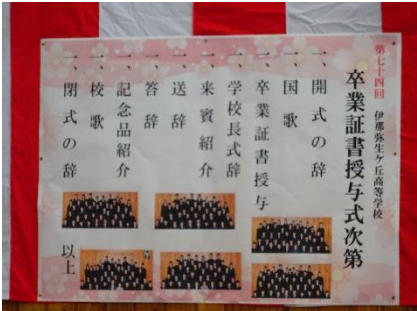 第七十四回 伊那弥生ケ丘高等学校
卒業証書授与式次第
一、開式の辞
一、国歌
一、卒業証書授与
一、学校長式辞
一、来賓紹介
一、送辞
一、答辞
一、記念品紹介
一、校歌
一、閉式の辞
以上